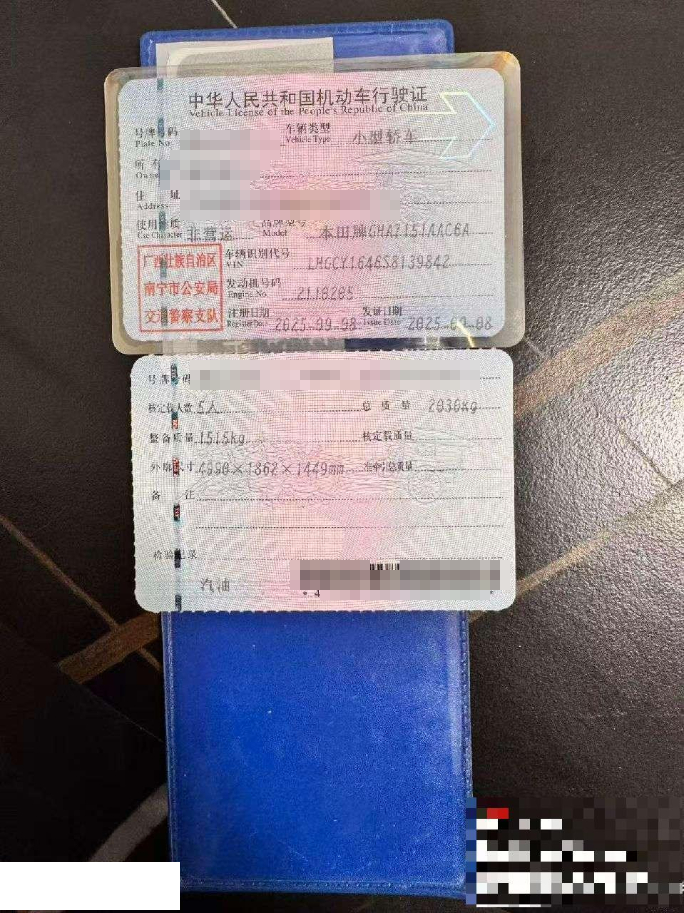 中华人民共和国机动车行驶证
Vehicle License of the People's Republic of China
号牌号码
Plate No.
车辆类型 小型轿车
Vehicle Type
所有
住 址
Address
使用性质 非营运
Use Character
品牌型号 本田牌GHA7151AAC6A
Model
广西壮族自治区
南宁市公安局
交通警察支队
车辆识别代号 LHGCY1646S8139842
VIN
发动机号码 2118285
Engine No.
注册日期 2025-09-08
Register Date
发证日期 2025-09-08
Issue Date
号牌号码
核定载人数 5人
总质量 2030kg
整备质量 1515kg
核定载质量
外廓尺寸 4990×1862×1449mm
准牵引总质量
备 注
检验记录
汽油